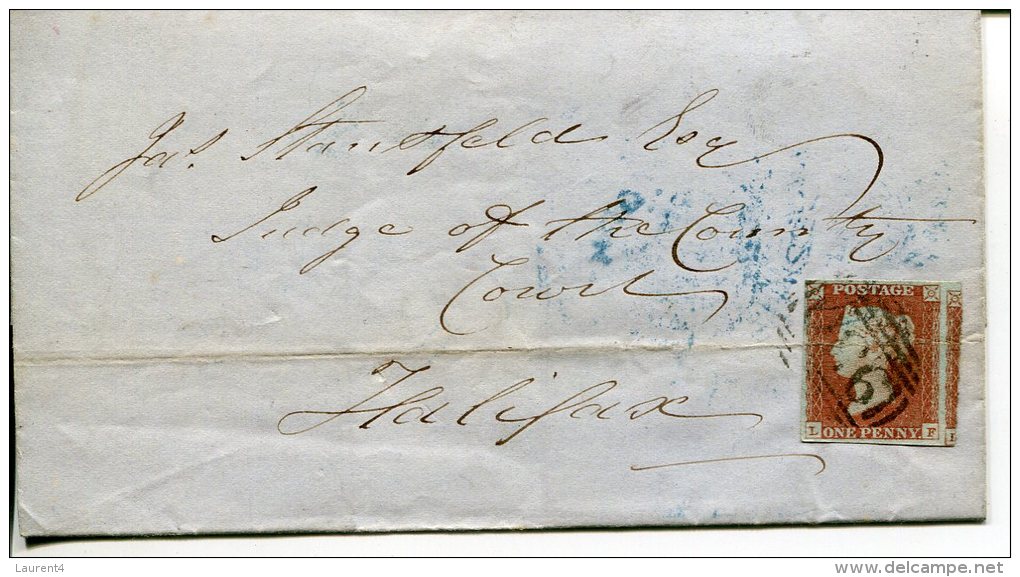 Jas. Stansfeld Esq
Judge of the County
Court
Halifax
POSTAGE
ONE PENNY.
L F
Laurent4
delcampe.net